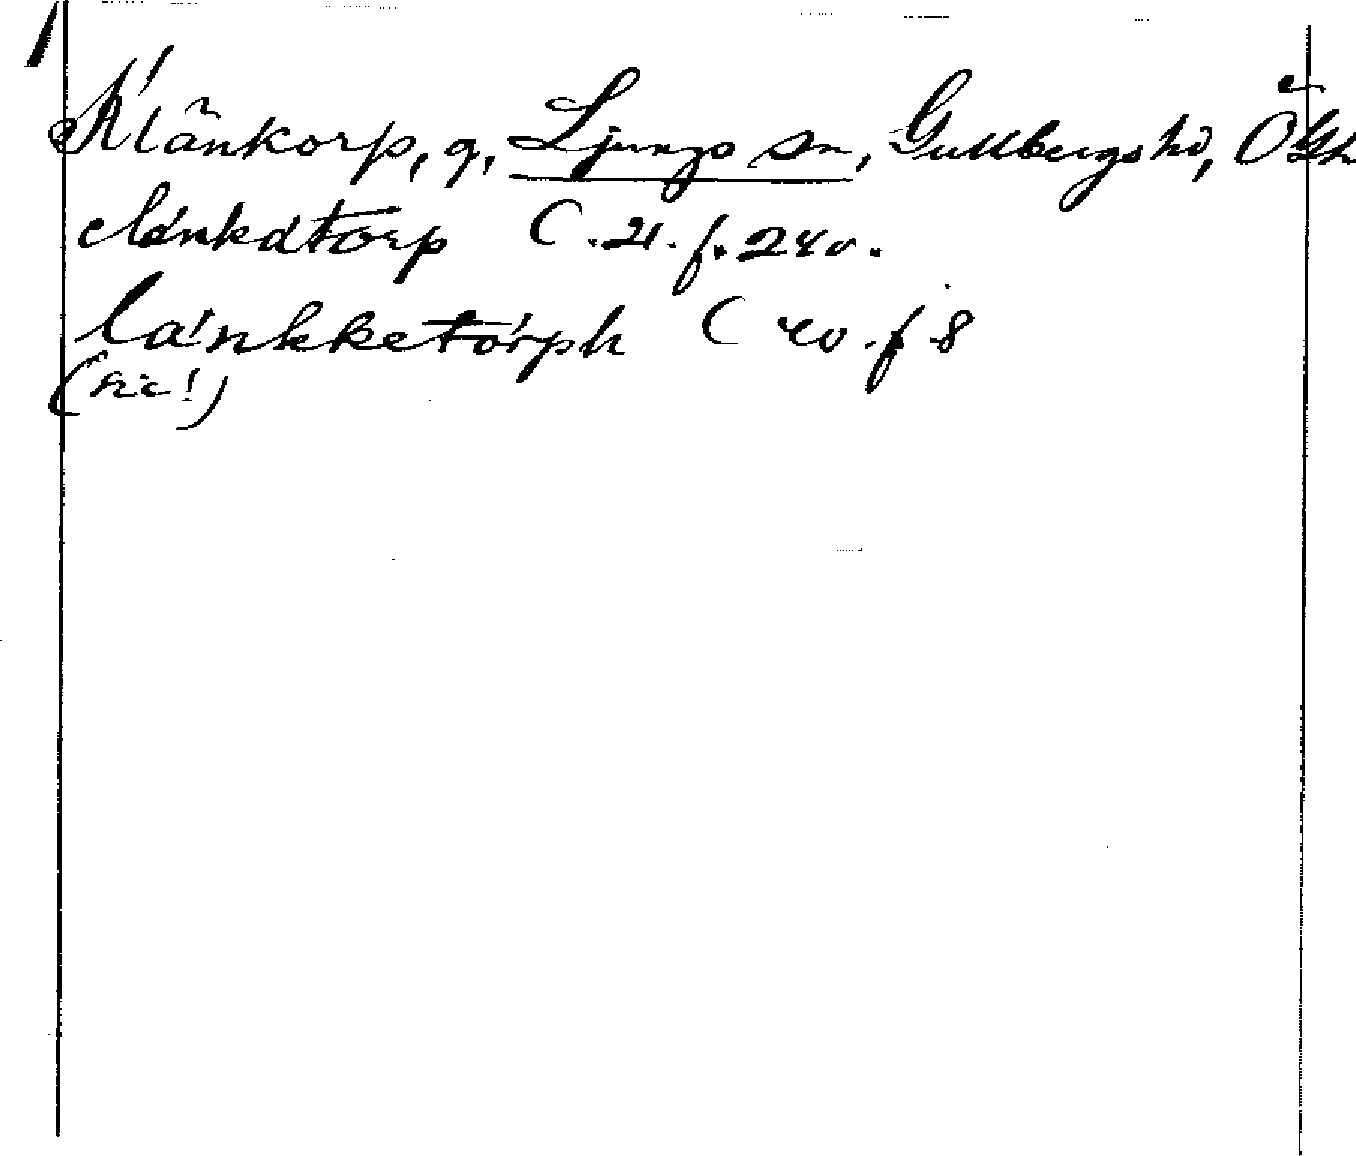 Klänkorp, g, Ljungs sn, Gullbergs hd, Ögl
clänkatorp C. 21. f. 240.
länkketorph C 20. f 8
(sic!)